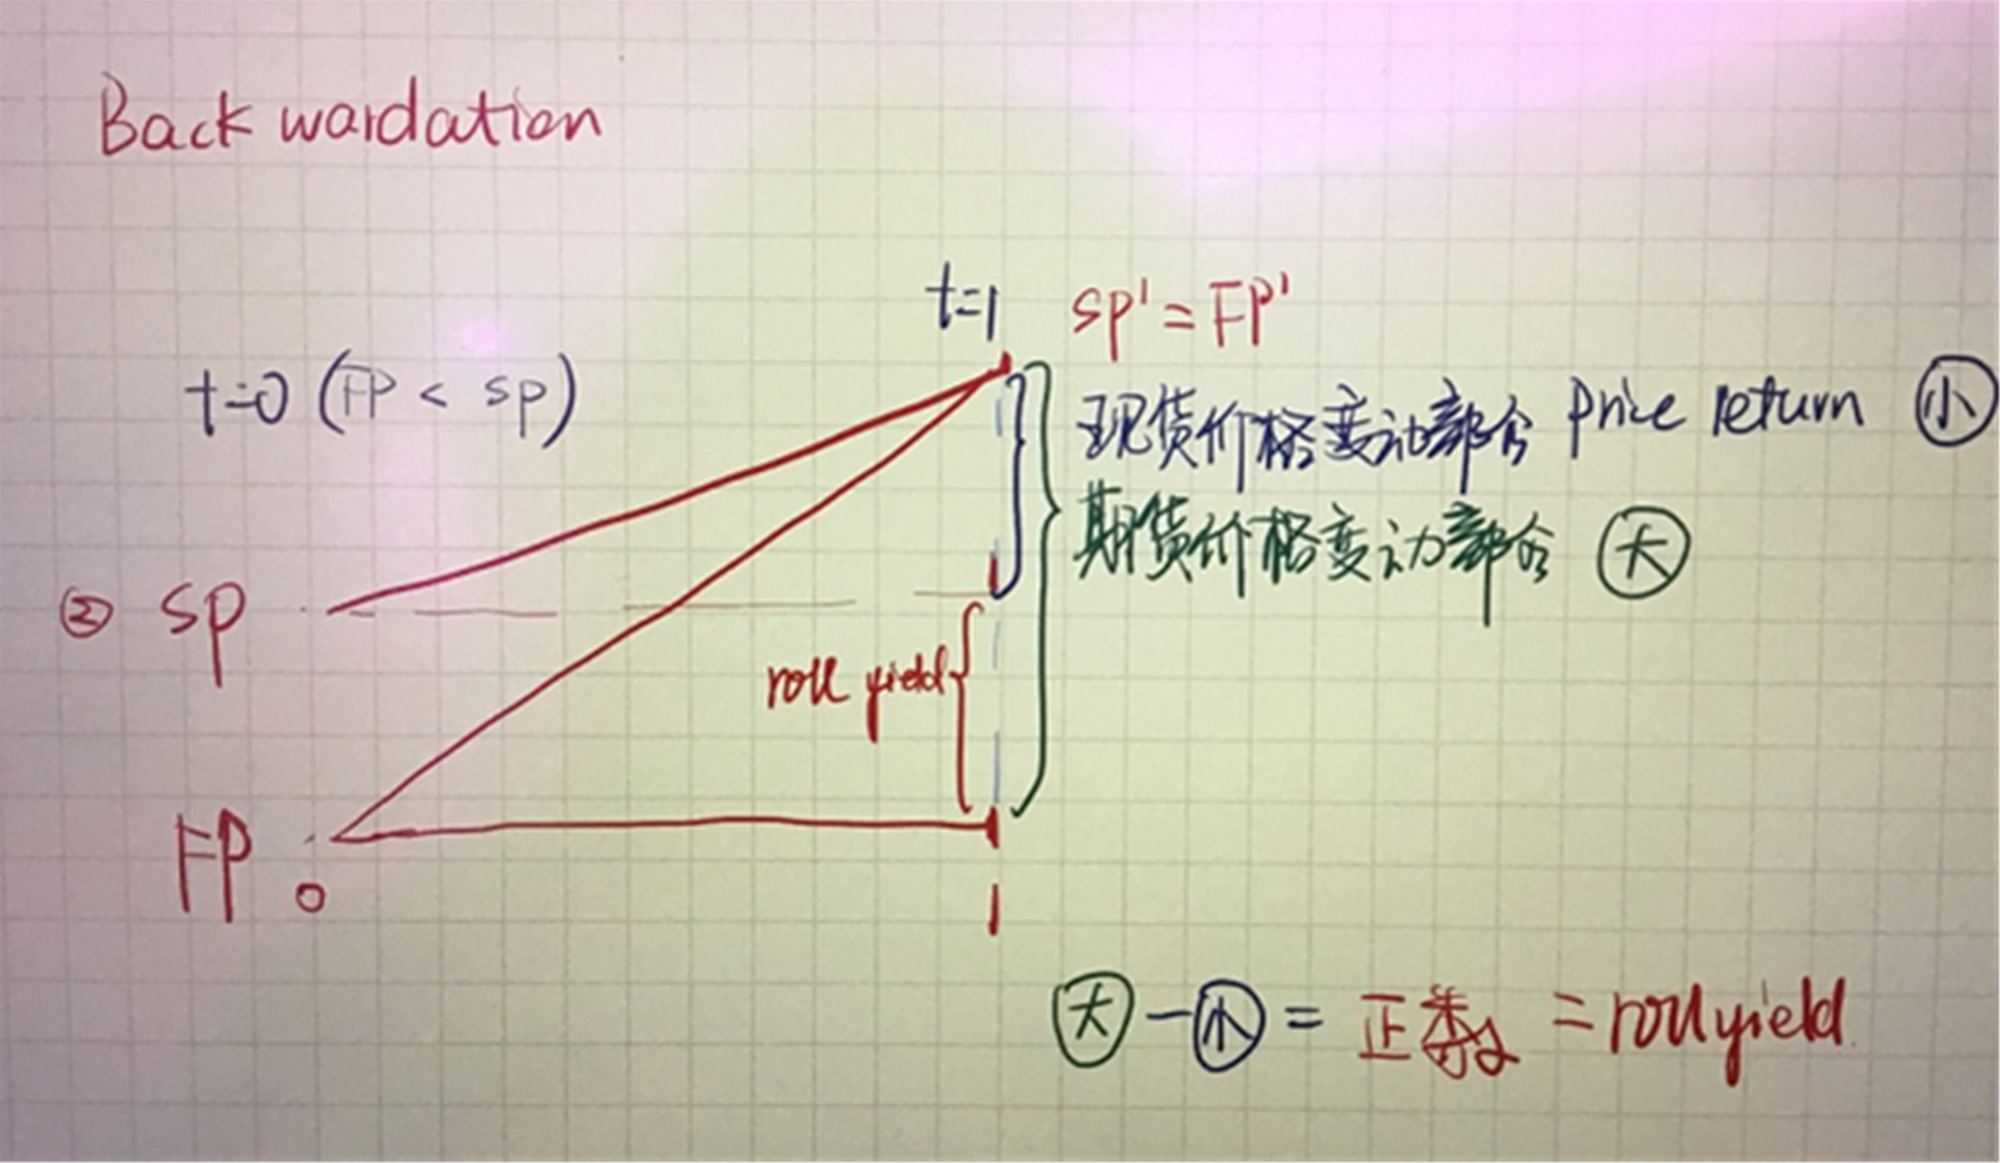 Backwardation
t=1 SP' = FP'
t=0 (FP < SP)
现货价格变动部分 Price return 小
期货价格变动部分 大
② SP
roll yield
FP
0 1
大 - 小 = 正数 = roll yield